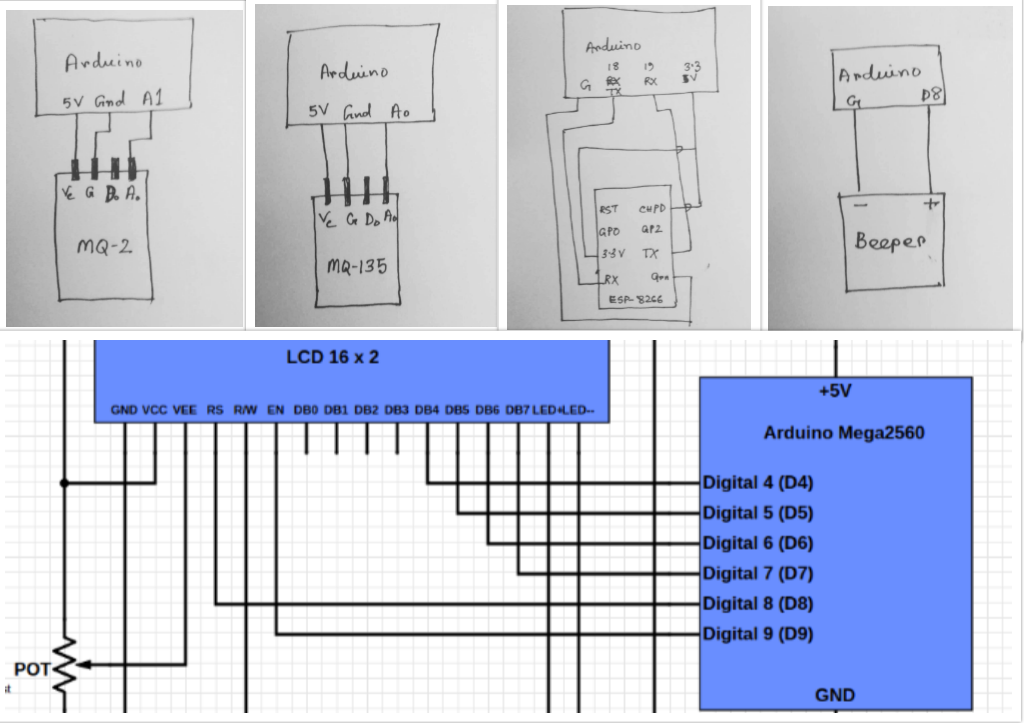 Arduino
5V Gnd A1
Vc G Do Ao
MQ-2
Arduino
5V Gnd Ao
Vc G Do Ao
MQ-135
Arduino
18 19 3.3
G RX RX 5V
TX
RST CHPD
GPO GP2
3.3V TX
RX Gnn
ESP-8266
Arduino
G D8
- +
Beeper
LCD 16 x 2
GND VCC VEE RS R/W EN DB0 DB1 DB2 DB3 DB4 DB5 DB6 DB7 LED+ LED--
+5V
Arduino Mega2560
Digital 4 (D4)
Digital 5 (D5)
Digital 6 (D6)
Digital 7 (D7)
Digital 8 (D8)
Digital 9 (D9)
GND
POT